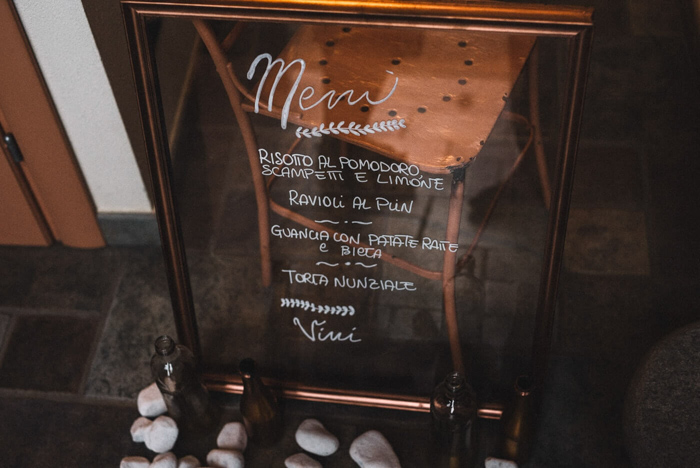 Menù
RISOTTO AL POMODORO,
SCAMPETTI E LIMONE
RAVIOLI AL PLIN
GUANCIA CON PATATE RATTE
E BIETA
TORTA NUNZIALE
Vini